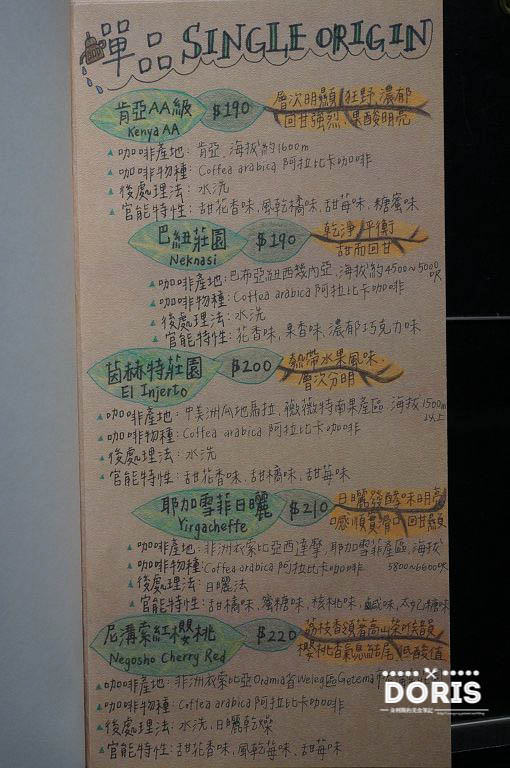 單品 SINGLE ORIGIN
肯亞AA級 $190 層次明顯 狂野 濃郁
Kenya AA 回甘強烈 果酸明亮
▲咖啡產地：肯亞、海拔約1600m
▲咖啡物種：Coffea arabica 阿拉比卡咖啡
▲後處理法：水洗
▲官能特性：甜花香味、風乾橘味、甜莓味、糖蜜味
巴紐莊園 $190 乾淨 平衡
Neknasi 甜而回甘
▲咖啡產地：巴布亞紐西幾內亞、海拔約4500~5000呎
▲咖啡物種：Coffea arabica 阿拉比卡咖啡
▲後處理法：水洗
▲官能特性：花香味、果香味、濃郁巧克力味
茵赫特莊園 $200 熱帶水果風味、
El Injerto 層次分明
▲咖啡產地：中美洲瓜地馬拉、薇薇特南果產區、海拔1500m以上
▲咖啡物種：Coffea arabica 阿拉比卡咖啡
▲後處理法：水洗
▲官能特性：甜花香味、甜橘味、甜莓味
耶加雪菲日曬 $210 日曬發酵味明亮
Yirgacheffe 口感順實滑口 回甘顯
▲咖啡產地：非洲衣索比亞西達摩、耶加雪菲產區、海拔
▲咖啡物種：Coffea arabica 阿拉比卡咖啡 5800~6600呎
▲後處理法：日曬法
▲官能特性：甜橘味、蜜糖味、核桃味、鹹味、太妃糖味
尼溝索紅櫻桃 $220 荔枝香領著高山茶喉韻
Negosho Cherry Red 櫻桃香氣息結尾 低酸值
▲咖啡產地：非洲衣索比亞Oramia省Welega區Getema
▲咖啡物種：Coffea arabica 阿拉比卡咖啡
▲後處理法：水洗、日曬乾燥
▲官能特性：甜花香味、風乾莓味、甜莓味
DORIS